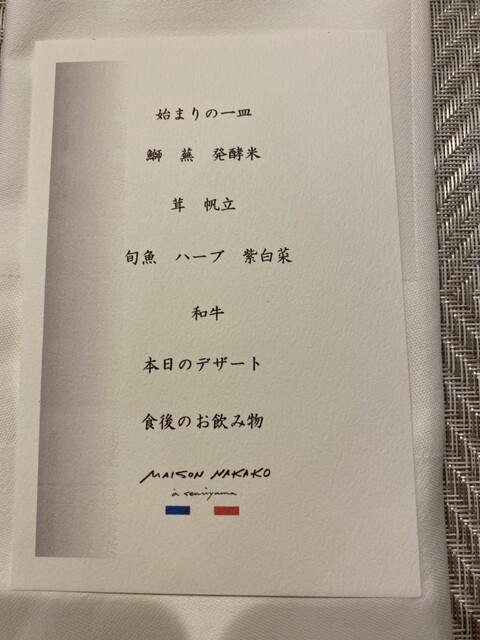 始まりの一皿
鰤 蕪 発酵米
茸 帆立
旬魚 ハーブ 紫白菜
和牛
本日のデザート
食後のお飲み物
MAISON NAKAKO
à senriyama